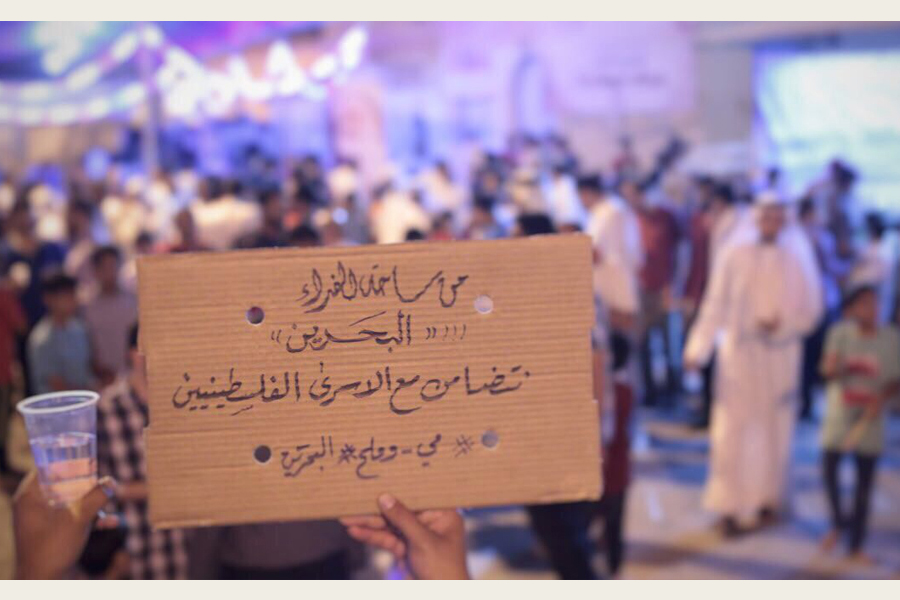 من ساحة الفداء
"البحرين"
نتضامن مع الاسرى الفلسطينيين
#مي_وملح #البحرين